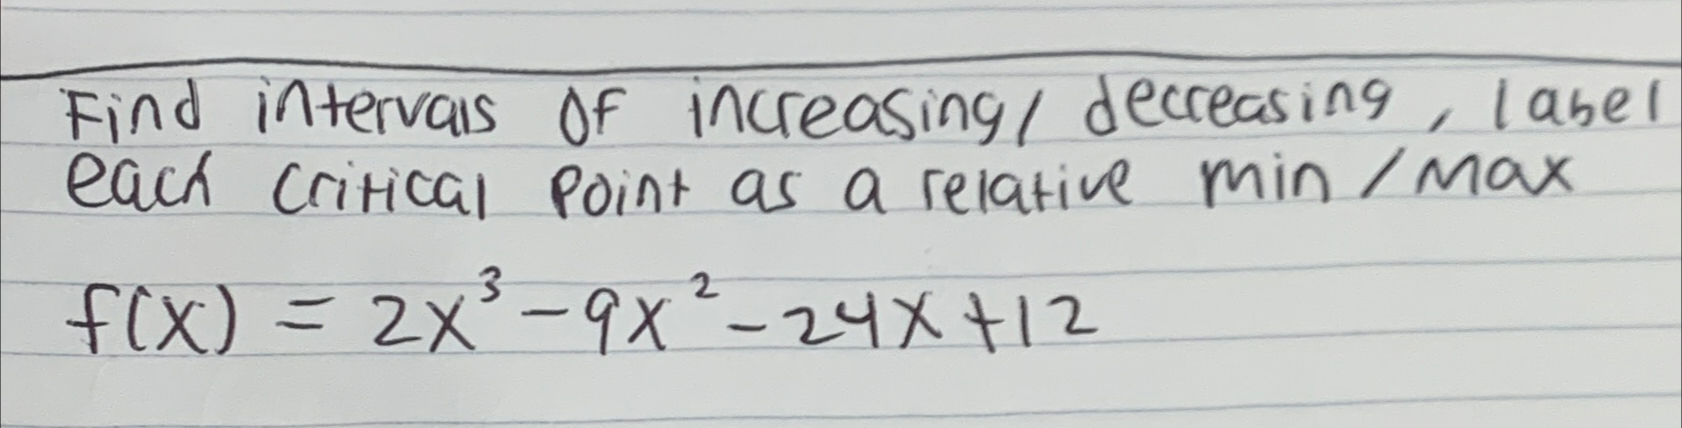 Find intervals of increasing/ decreasing, label
each critical point as a relative min/max
f(x) = 2x³ - 9x² - 24x + 12